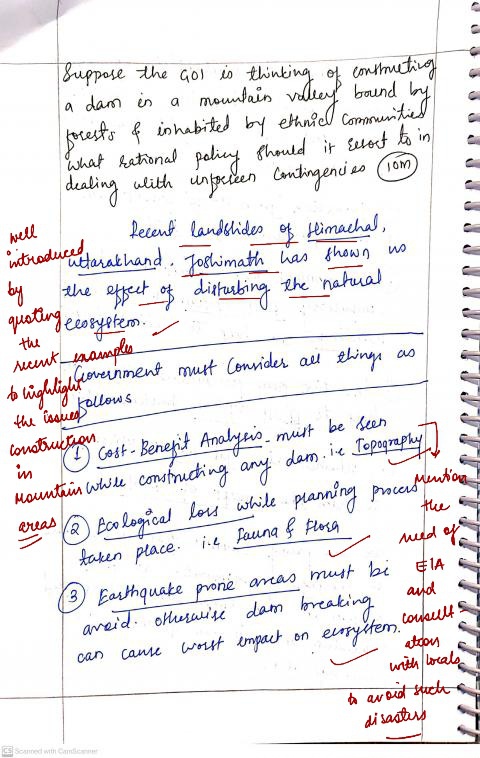 Suppose the GOI is thinking of constructing
a dam in a mountain valley bound by
forests & inhabited by ethnic communities
what rational policy should it resort to in
dealing with unforseen contingencies 10m
Recent landslides of Himachal,
uttarakhand. Joshimath has shown us
the effect of disturbing the natural
ecosystem.
well
introduced
by
quoting
the
recent examples
to highlight
the issues
construction
in
mountain
areas
Government must consider all things as
follows
1 Cost-Benefit Analysis must be seen
while constructing any dam. i.e Topography
2 Ecological loss while planning process
taken place. i.e Fauna & Flora
3 Earthquake prone areas must be
avoid. otherwise dam breaking
can cause worst impact on ecosystem.
Mention
the
need of
EIA
and
consult
ation
with locals
to avoid such
disasters
CS Scanned with CamScanner